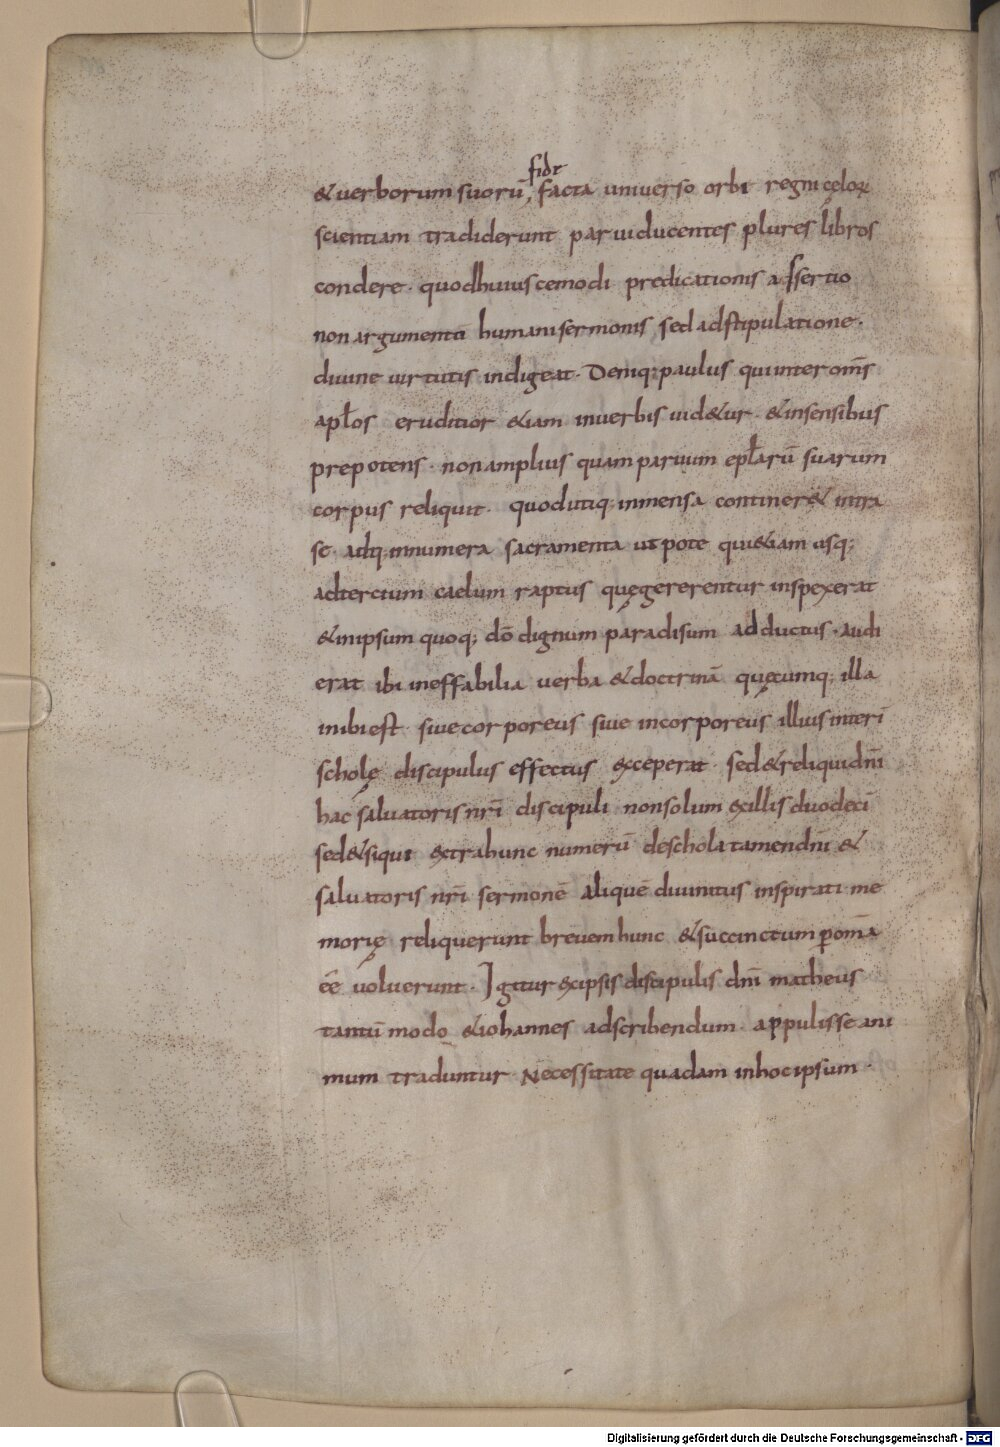 fidē
&verborum suorū, facta universo orbi regni cęloꝝ
scientiam tradiderunt parui ducentes plures libros
condere · quodhuiuscemodi predicationis assertio
non argumenti humani sermonis sed adstipulatione ·
diuine uirtutis indigeat · Deniq; paulus qui inter om̄s
apl̄os eruditior &iam inuerbis uid&ur · &insensibus
prepotens · non amplius quam parium epl̄arū suarum
corpus reliquit · quodutiq; inmensa continer& intra
se · adq; innumera sacramenta utpote qui&iam usq;
adtercium caelum raptus quęgererentur inspexerat
&inipsum quoq; dō dignum paradisum adductus · audi
erat ibi ineffabilia uerba &doctrinā quęcumq; illa
inibiest · siuecorporeus siue incorporeus illius interi
scholę discipulus effectus exceperat · sed&reliquidn̄i
hac saluatoris nr̄i discipuli nonsolum exillis duodeci
sed&siqui extrahunc numerū deschola tamendn̄i &
saluatoris nr̄i sermonē aliquē diuinitus inspirati me
morię reliquerunt breuem hunc &succinctum ꝑomā
ēē uoluerunt · Igitur exipsis discipulis dn̄i matheus
tantū modo &iohannes adscribendum · appulisse ani
mum traduntur · Necessitate quadam inhocipsum ·
Digitalisierung gefördert durch die Deutsche Forschungsgemeinschaft - DFG